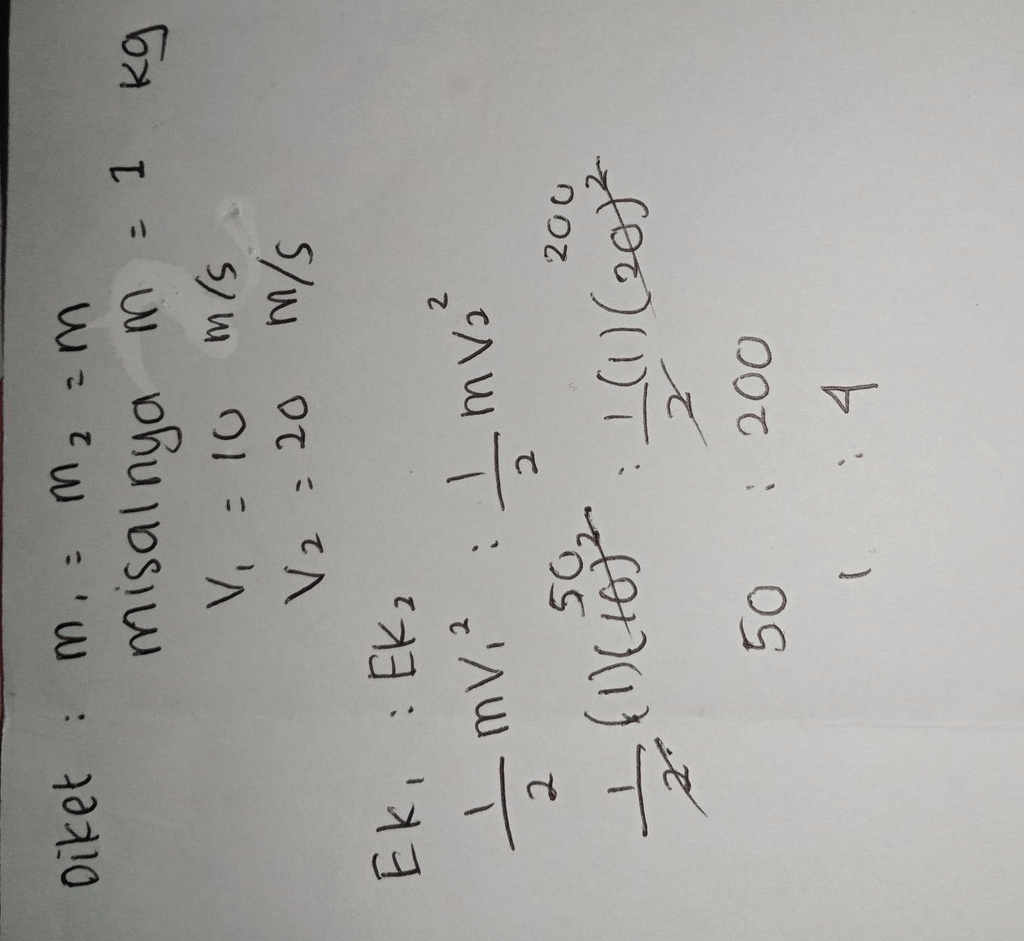 Diket : m₁ = m₂ = m
misalnya m = 1 kg
V₁ = 10 m/s
V₂ = 20 m/s
Ek₁ : Ek₂
1/2 mV₁² : 1/2 mV₂²
50 200
1/2 (1)(10)² : 1/2 (1)(20)²
50 : 200
1 : 4